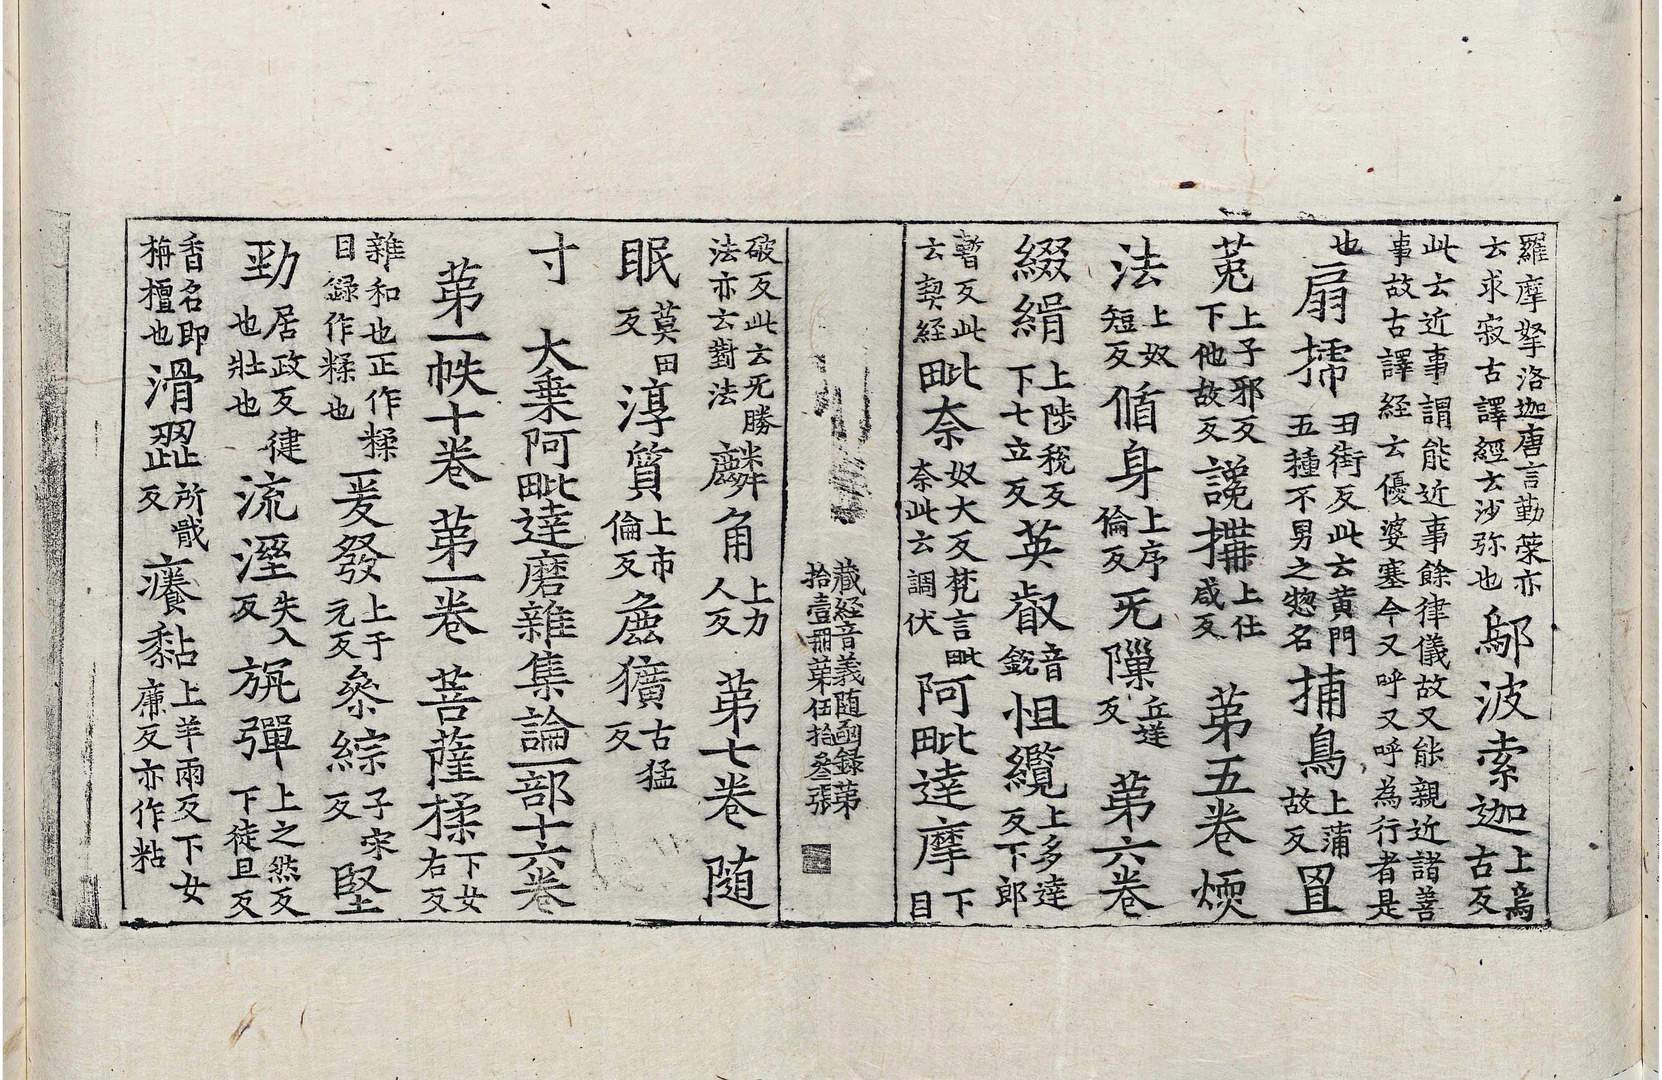 羅摩拏洛迦唐言勤䇿亦云求寂古譯經云沙弥也鄔波索迦上烏古反
此云近事謂能近事餘律儀故又能親近諸善事故古譯經云優婆塞今又呼又呼為行者是
也扇㨖丑街反此云黄門五種不男之惣名捕鳥上蒲故反罝
菟上子邪反下他故反讒搆上仕咸反 第五卷 煗
法上奴短反循身上序倫反无隟丘逆反 第六卷
綴緝上陟稅反下七立反英叡音銳怛纜上多達反下郎
暫反此云契經毗奈奴大反梵言毗奈此云調伏阿毗達摩下目
藏經音義随函録第
拾壹冊第伍拾叄張
破反此云无勝法亦云對法麟角上力人反 第七卷 随
眠莫田反淳質上市倫反麁獷古猛反
寸 大乗阿毗達磨雜集論一部十六卷
第一帙十卷 第一卷 菩薩揉下女右反
雜和也正作糅目録作糅也爰發上于元反叅綜子宋反堅
勁居政反健也壯也流溼失入反旃彈上之然反下徒旦反
香名即栴檀也滑澀所戢反癢黏上羊兩反下女廉反亦作粘